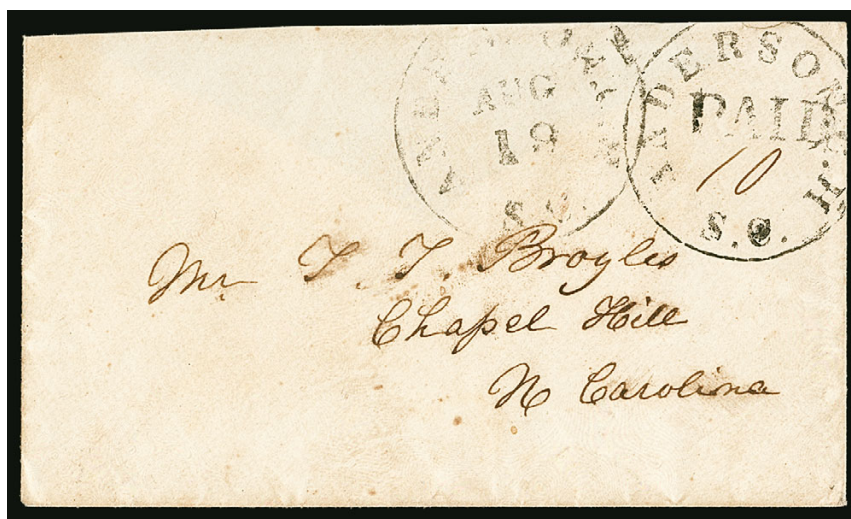 ANDERSON C.H.
AUG
18
S.C.
ANDERSON C.H.
PAID
10
S.C.
Mr T. T. Broyles
Chapel Hill
N Carolina